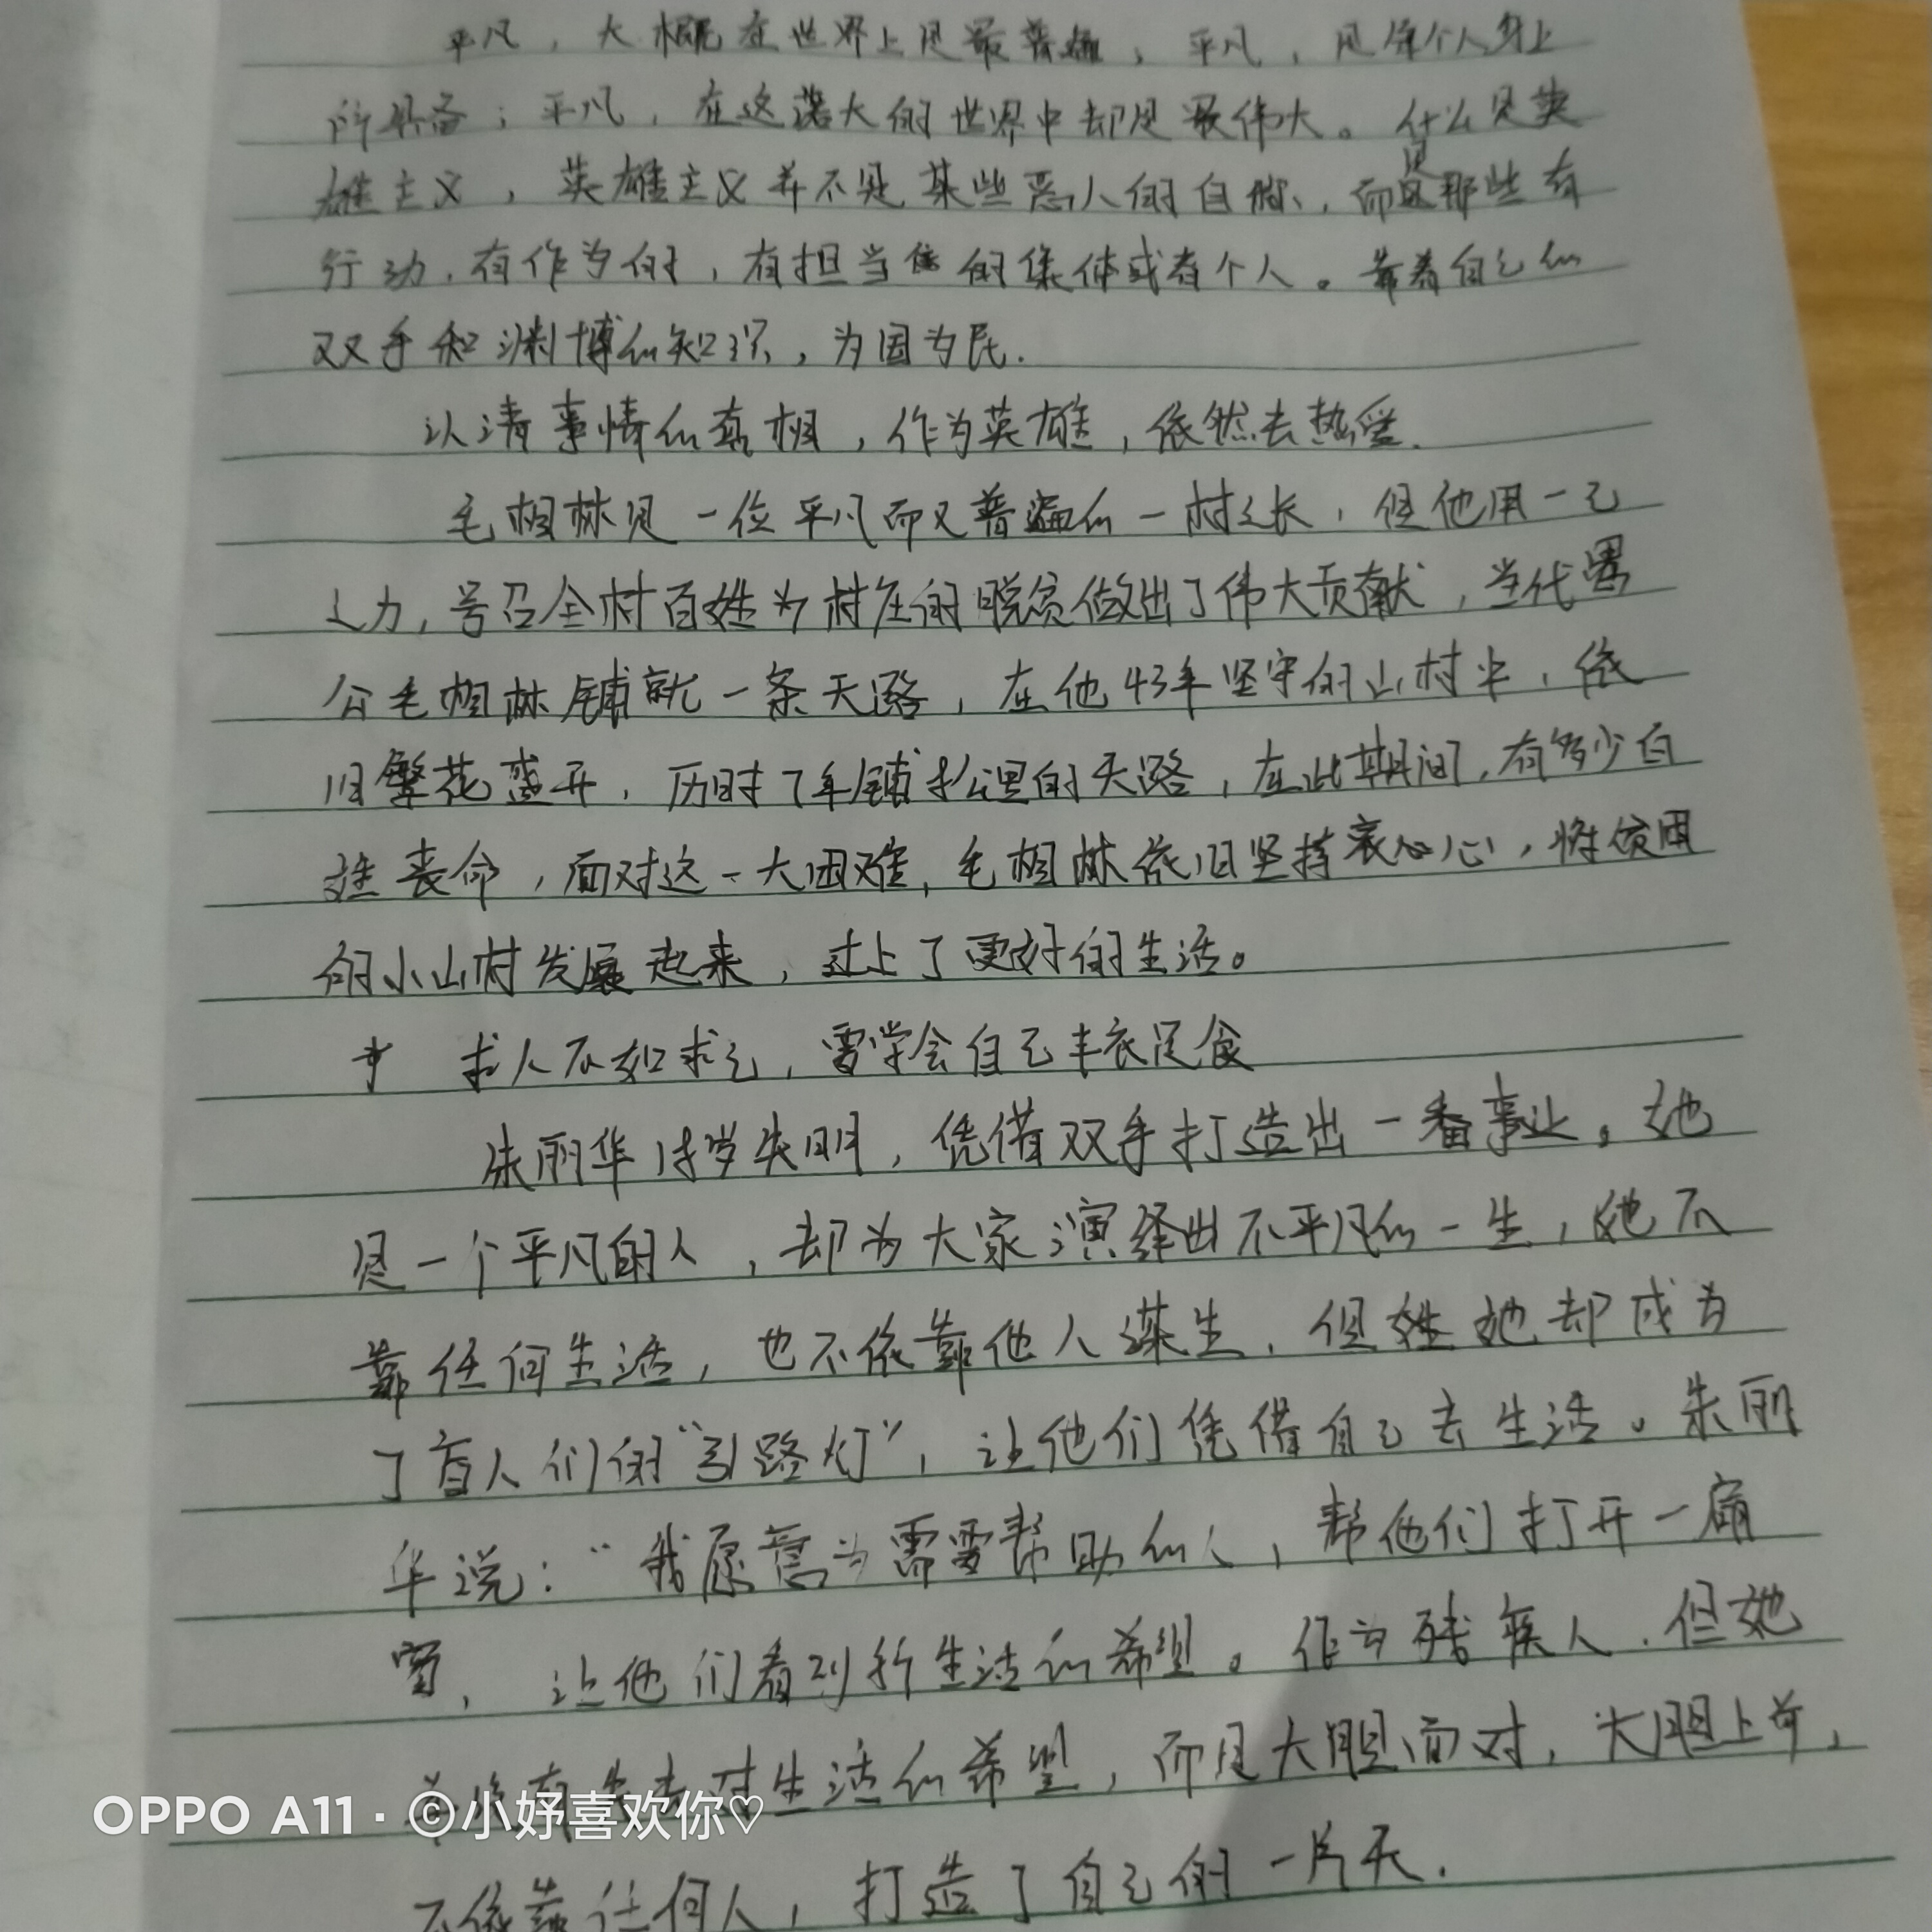 平凡，大概在世界上是最普遍，平凡，是每个人身上
所具备；平凡，在这诺大的世界中却是最伟大。什么是英
雄主义，英雄主义并不是某些恶人的自称，而是那些有
行动，有作为的，有担当的集体或者个人。靠着自己的
双手和渊博的知识，为国为民.
认清事情的真相，作为英雄，依然去热爱.
毛相林是一位平凡而又普遍的一村之长，但他用一己
之力，号召全村百姓为村庄的脱贫做出了伟大贡献，当代愚
公毛相林铺就一条天路，在他43年坚守的山村中，依
旧繁花盛开，历时7年铺公里的天路，在此期间，有多少百
姓丧命，面对这一大困难，毛相林依旧坚持衷心心，将贫困
的小山村发展起来，过上了更好的生活。
求人不如求己，需学会自己丰衣足食
朱丽华岁失明，凭借双手打造出一番事业。她
是一个平凡的人，却为大家演绎出不平凡的一生，她不
靠任何生活，也不依靠他人谋生，但她却成为
了盲人们的“引路灯”，让他们凭借自己去生活。朱丽
华说：“我愿意为需要帮助的人，帮他们打开一扇
窗，让他们看到新生活的希望。作为残疾人，但她
并没有失去对生活的希望，而是大胆面对，大胆上前，
不依靠任何人，打造了自己的一片天.
OPPO A11 · ©小妤喜欢你♡